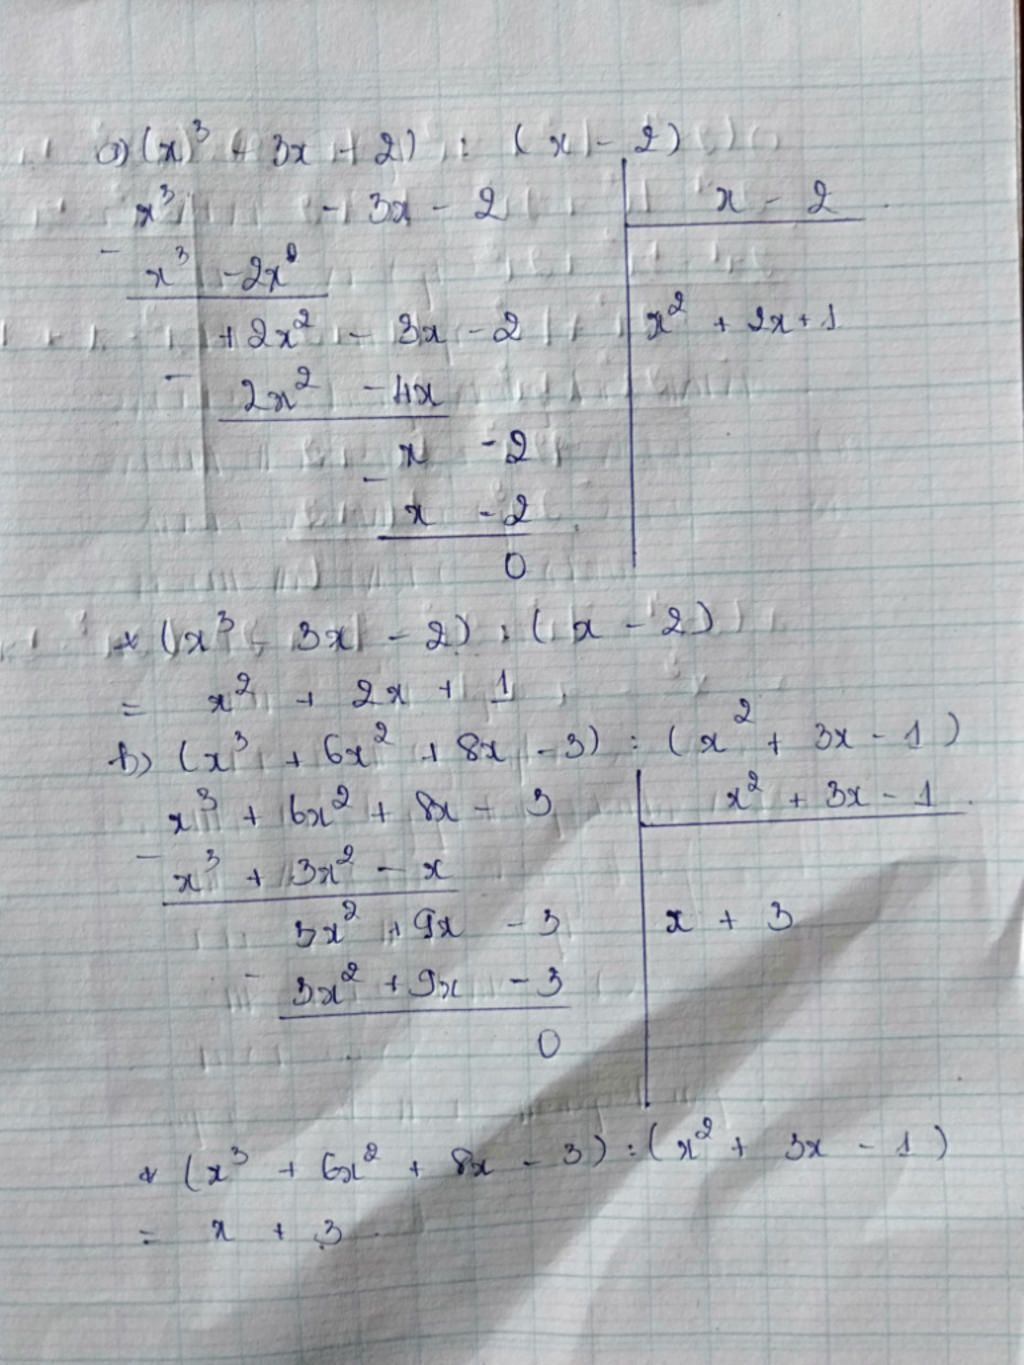 a) (x³ + 3x + 2) : (x - 2)
x³ - 3x - 2 | x - 2
- x³ - 2x²
+ 2x² - 3x - 2 | x² + 2x + 1
- 2x² - 4x
x - 2
- x - 2
0
* (x³ - 3x - 2) : (x - 2)
= x² + 2x + 1
b) (x³ + 6x² + 8x - 3) : (x² + 3x - 1)
x³ + 6x² + 8x - 3 | x² + 3x - 1
- x³ + 3x² - x
3x² + 9x - 3 | x + 3
- 3x² + 9x - 3
0
* (x³ + 6x² + 8x - 3) : (x² + 3x - 1)
= x + 3